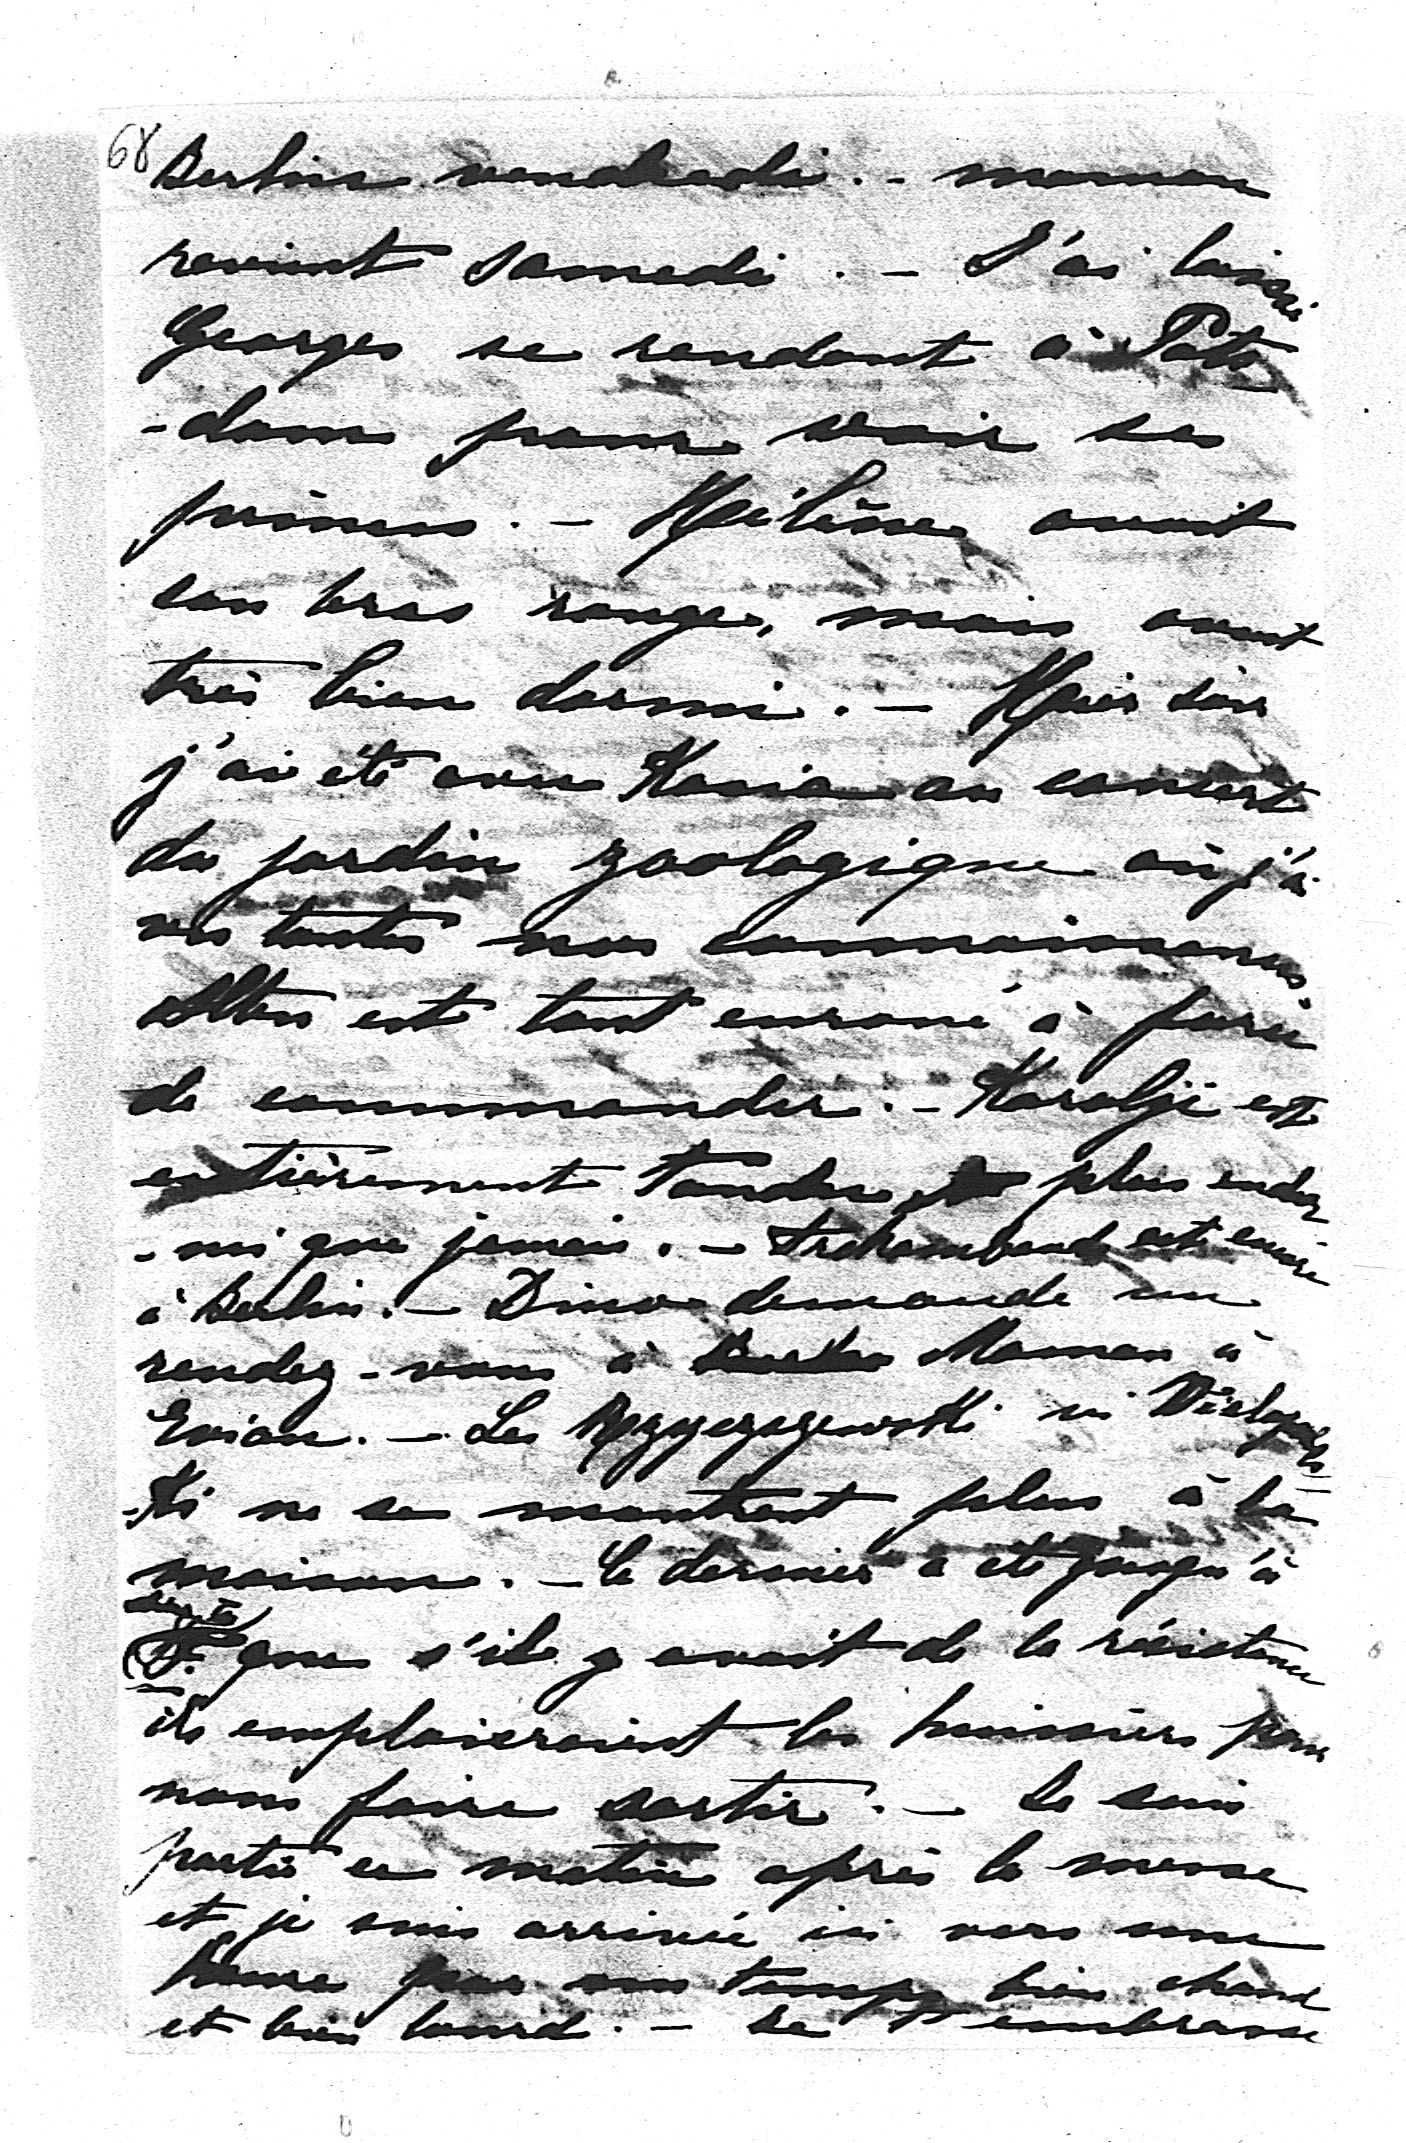 68
Berlin vendredi. - maman
revient samedi. - J'ai laissé
Georges se rendant à Pots
-dam pour voir ses
princes. - Hélène avait
son bras rouge, mais avait
très bien dormi. - Hier soir
j'ai été avec Kasia au concert
du jardin zoologique où j'ai
vu toutes nos connaissances.
Alten est tout enroué à force
de commander. - Karolyi est
entièrement tondu, plus endor
-mi que jamais. - est encore
à Berlin. - Dino demande un
rendez-vous à Maman à
Evian. - Les ni
-ki ne se montrent plus à la
maison. - Le dernier a été jusqu'à
dire à
F. que s'il y avait de la résistance
ils emploieraient les huissiers pour
nous faire sortir. - Je suis
partie ce matin après la messe
et je suis arrivée ici vers une
heure par un temps bien chaud
et bien lourd. - Je t'embrasse